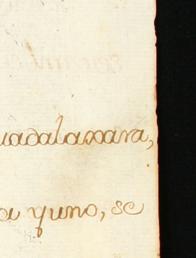 uadalaxara,
a yuno, se